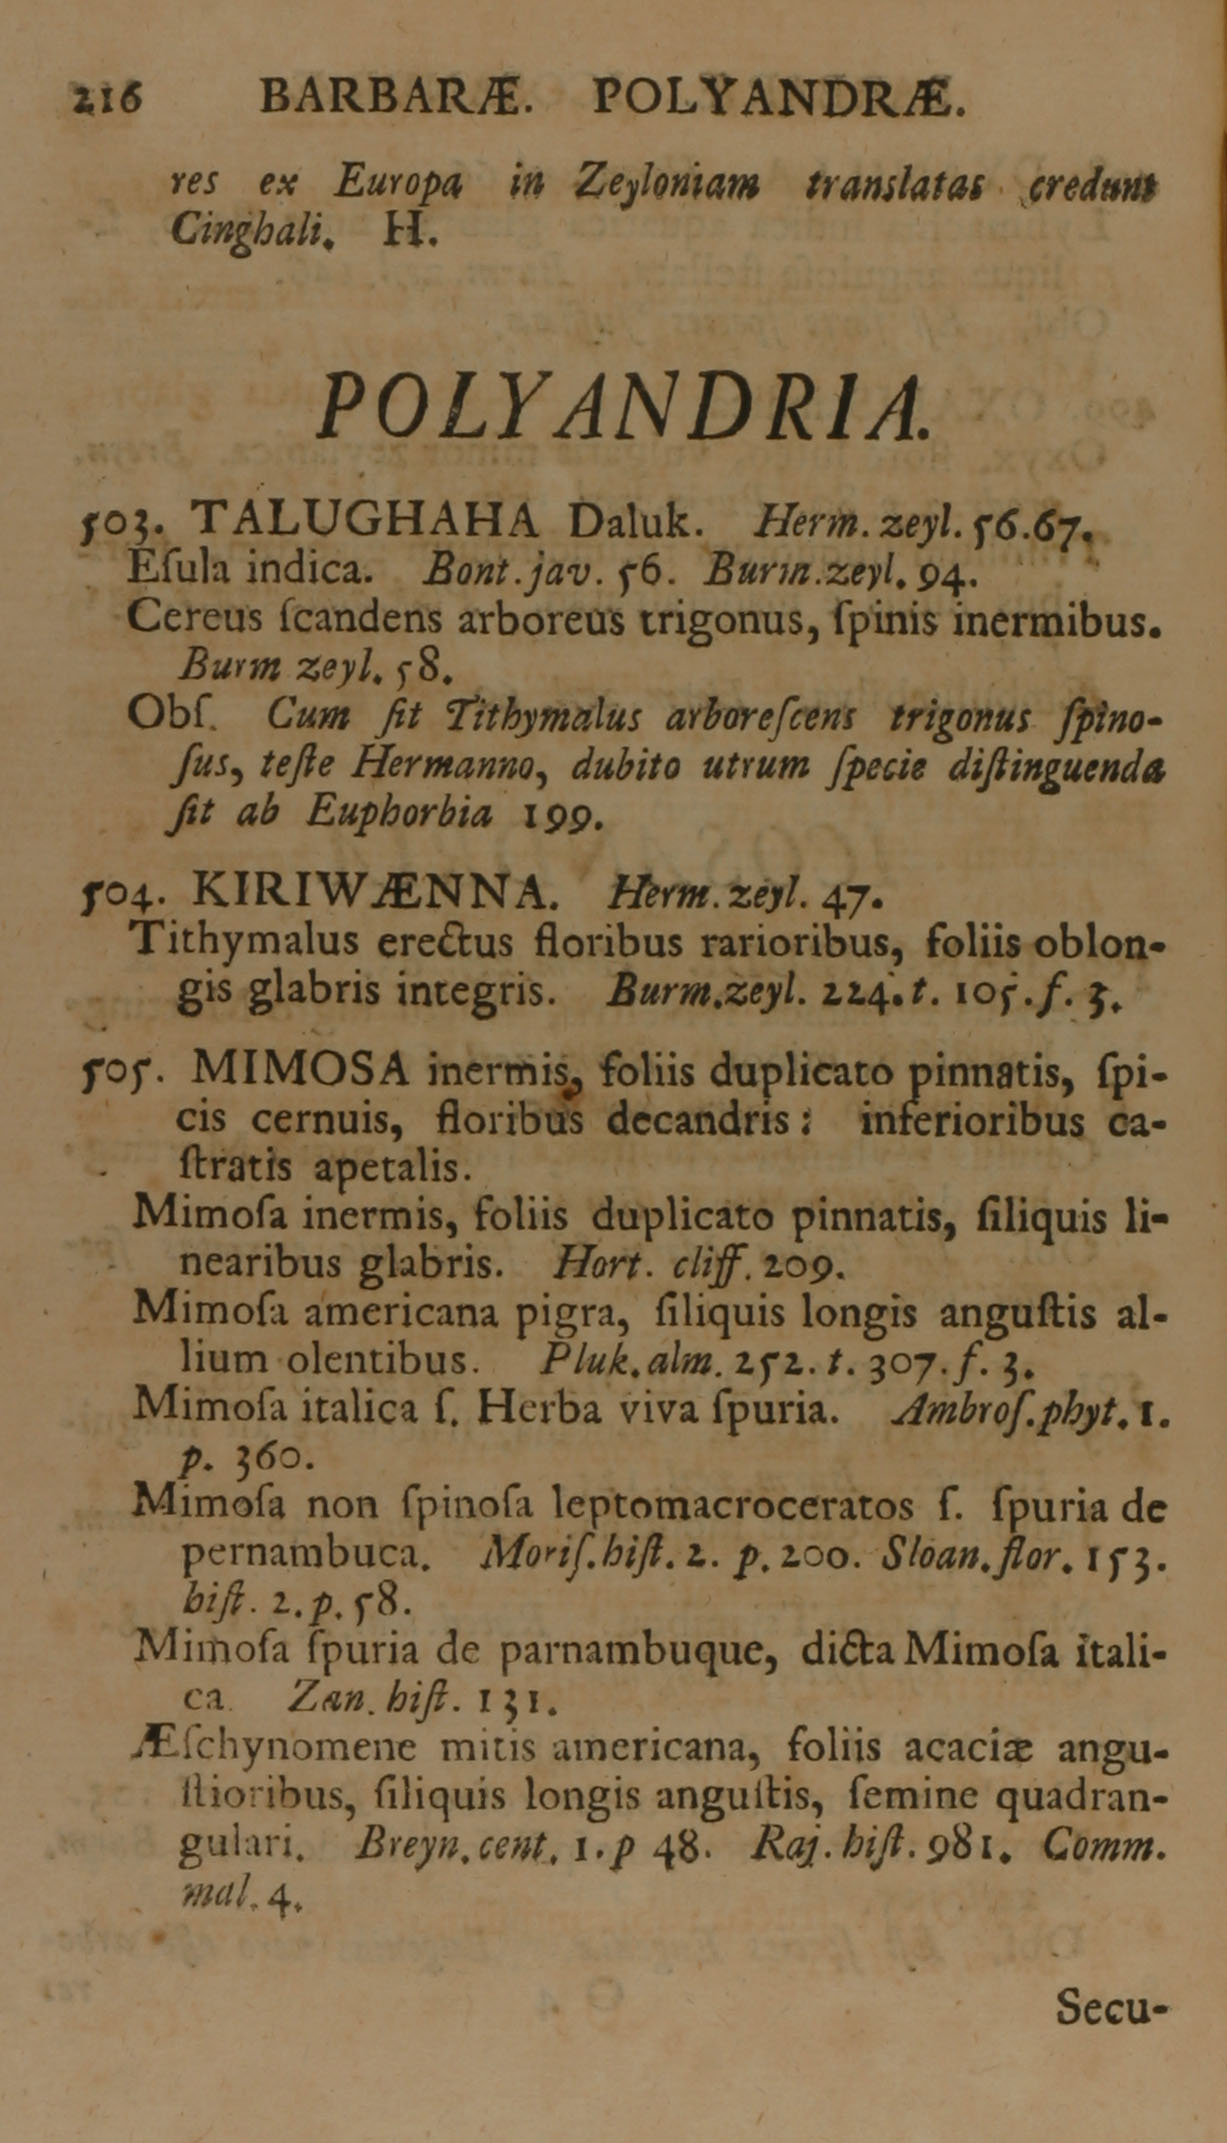 216 BARBARÆ. POLYANDRÆ.
res ex Europa in Zeyloniam translatas credunt
Cinghali. H.
POLYANDRIA.
503. TALUGHAHA Daluk. Herm. zeyl. 56.67.
Eſula indica. Bont.jav. 56. Burm.zeyl. 94.
Cereus ſcandens arboreus trigonus, ſpinis inermibus.
Burm zeyl. 58.
Obſ. Cum ſit Tithymalus arboreſcens trigonus ſpino-
ſus, teſte Hermanno, dubito utrum ſpecie diſtinguenda
ſit ab Euphorbia 199.
504. KIRIWÆNNA. Herm. zeyl. 47.
Tithymalus erectus floribus rarioribus, foliis oblon-
gis glabris integris. Burm.zeyl. 224. t. 105. f. 3.
505. MIMOSA inermis, foliis duplicato pinnatis, ſpi-
cis cernuis, floribus decandris: inferioribus ca-
ſtratis apetalis.
Mimoſa inermis, foliis duplicato pinnatis, ſiliquis li-
nearibus glabris. Hort. cliff. 209.
Mimoſa americana pigra, ſiliquis longis anguſtis al-
lium olentibus. Pluk. alm. 252. t. 307. f. 3.
Mimoſa italica ſ. Herba viva ſpuria. Ambroſ.phyt. 1.
p. 360.
Mimoſa non ſpinoſa leptomacroceratos ſ. ſpuria de
pernambuca. Moriſ.hiſt. 2. p. 200. Sloan. flor. 153.
hiſt. 2. p. 58.
Mimoſa ſpuria de parnambuque, dicta Mimoſa itali-
ca. Zan. hiſt. 131.
Æſchynomene mitis americana, foliis acaciæ angu-
ſtioribus, ſiliquis longis anguſtis, ſemine quadran-
gulari. Breyn. cent. 1. p 48. Raj. hiſt. 981. Comm.
mal. 4.
Secu-